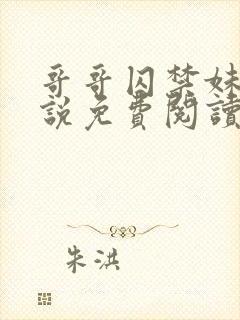 哥哥囚禁妹
說免費閱讀
朱洪